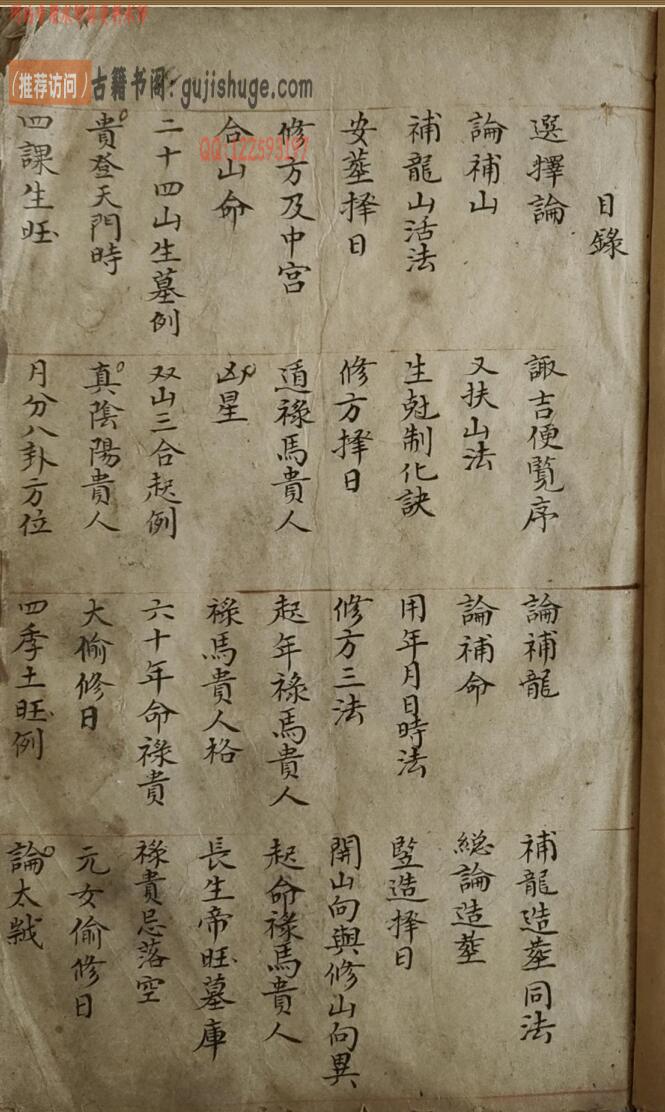 （推荐访问）古籍书阁：gujishuge.com
QQ:122593197
目錄
選擇論
諏吉便覽序
論補龍
補龍造塟同法
論補山
又扶山法
論補命
総論造塟
補龍山活法
生尅制化訣
用年月日時法
竪造择日
安塟择日
修方择日
修方三法
開山向與修山向異
修方及中宫
遁祿馬貴人
起年祿馬貴人
起命祿馬貴人
合山命
凶星
祿馬貴人格
長生帝旺墓庫
二十四山生墓例
双山三合起例
六十年命祿貴
祿貴忌落空
貴登天門時
真陰陽貴人
大偷修日
元女偷修日
四課生旺
月分八卦方位
四季土旺例
論太歲